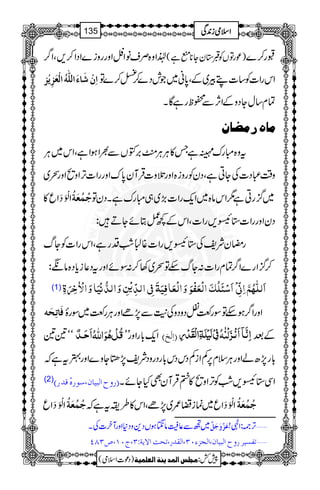 اسلامی زندگی 135
قبور کرے (عورتوں کو قبرستان جانا منع ہے) لہٰذا وہ صرف نوافل اور روزے ادا کریں، اگر
اس رات کو سات پتے بیری کے، پانی میں جوش دے کر غسل کرے تو اِنْ شَآءَ اللہُ الْعَزِیْز
تمام سال جادو کے اثر سے محفوظ رہے گا۔
ماہ رمضان
یہ وہ مبارک مہینہ ہے جس کا ہر ہر منٹ برکتوں سے بھرا ہوا ہے، اس میں ہر
وقت عبادت کی جاتی ہے، دن کو روزہ اور تلاوتِ قرآن پاک اور رات تراویح اور سحری
میں گزرتی ہے مگر اس ماہ میں ایک رات بڑی ہی مبارک ہے۔ دن تو جُمُعَۃُ الْوَداع کا
دن اور رات ستائیسویں رات، اس کے کچھ عمل بتائے جاتے ہیں:
رمضان شریف کی ستائیسویں رات غالبًا شبِ قدر ہے، اس رات کو جاگ
کر گزارے اگر تمام رات نہ جاگ سکے تو سحری کھا کر نہ سوئے اور یہ دعا زیادہ مانگے:
اَللّٰھُمَّ اِنِّیْ اَسْئَلُکَ الْعَفْوَ وَ الْعَافِیَۃَ فِی الدِّیْنِ وَ الدُّنْیَا وَ الْاٰخِرَۃِ (1)
اور اگر ہو سکے تو سو رکعت نفل دو دو کی نیت سے پڑھے اور ہر رکعت میں سورۂ فَاتِحَہ
کے بعد اِنَّآ اَنْزَلْنٰہُ فِیْ لَیْلَۃِ الْقَدْرِ (الخ) ایک بار اور ’’قُلْ ھُوَ اللہُ اَحَدٌ‘‘ تین تین
بار پڑھ لے اور ہر سلام پر کم از کم دس دس بار درود شریف پڑھتا جاوے اور بہتر یہ ہے کہ
اسی ستائیسویں شب کو تراویح کا ختم قرآن بھی کیا جائے۔ (روح البیان،سورۂ قدر)(2)
جُمُعَۃُ الْوَداع میں نمازِ قضا عمری پڑھے، اس کا طریقہ یہ ہے کہ جُمُعَۃُ الْوَداع
تفسیر روح البیان،الجزء۳۰،القدر،تحت الایۃ:۳،ج۱۰،ص۴۸۳
پیش کش: مجلس المدینۃ العلمیۃ (دعوتِ اسلامی)